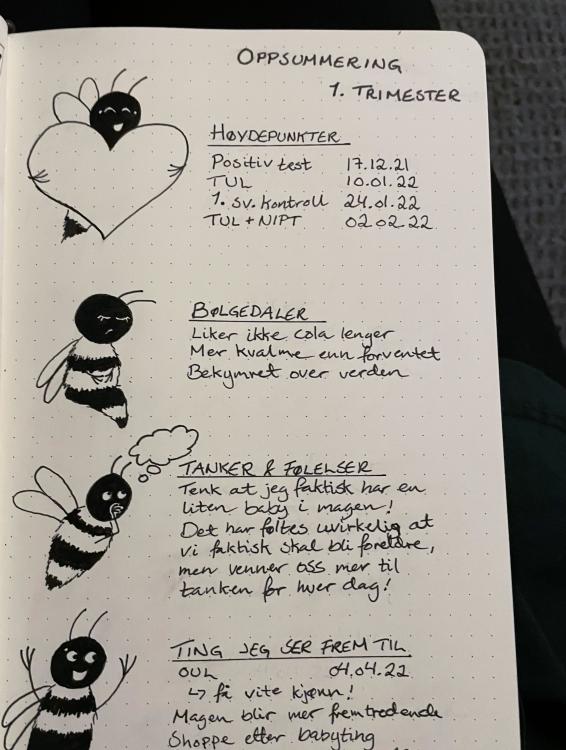 OPPSUMMERING
1. TRIMESTER
HØYDEPUNKTER
Positiv test 17.12.21
TUL 10.01.22
1. sv. kontroll 24.01.22
TUL + NIPT 02.02.22
BØLGEDALER
Liker ikke cola lenger
Mer kvalme enn forventet
Bekymret over verden
TANKER & FØLELSER
Tenk at jeg faktisk har en
liten baby i magen!
Det har føltes uvirkelig at
vi faktisk skal bli foreldre,
men venner oss mer til
tanken for hver dag!
TING JEG SER FREM TIL
OUL 04.04.22
↳ få vite kjønn!
Magen blir mer fremtredende
Shoppe etter babyting